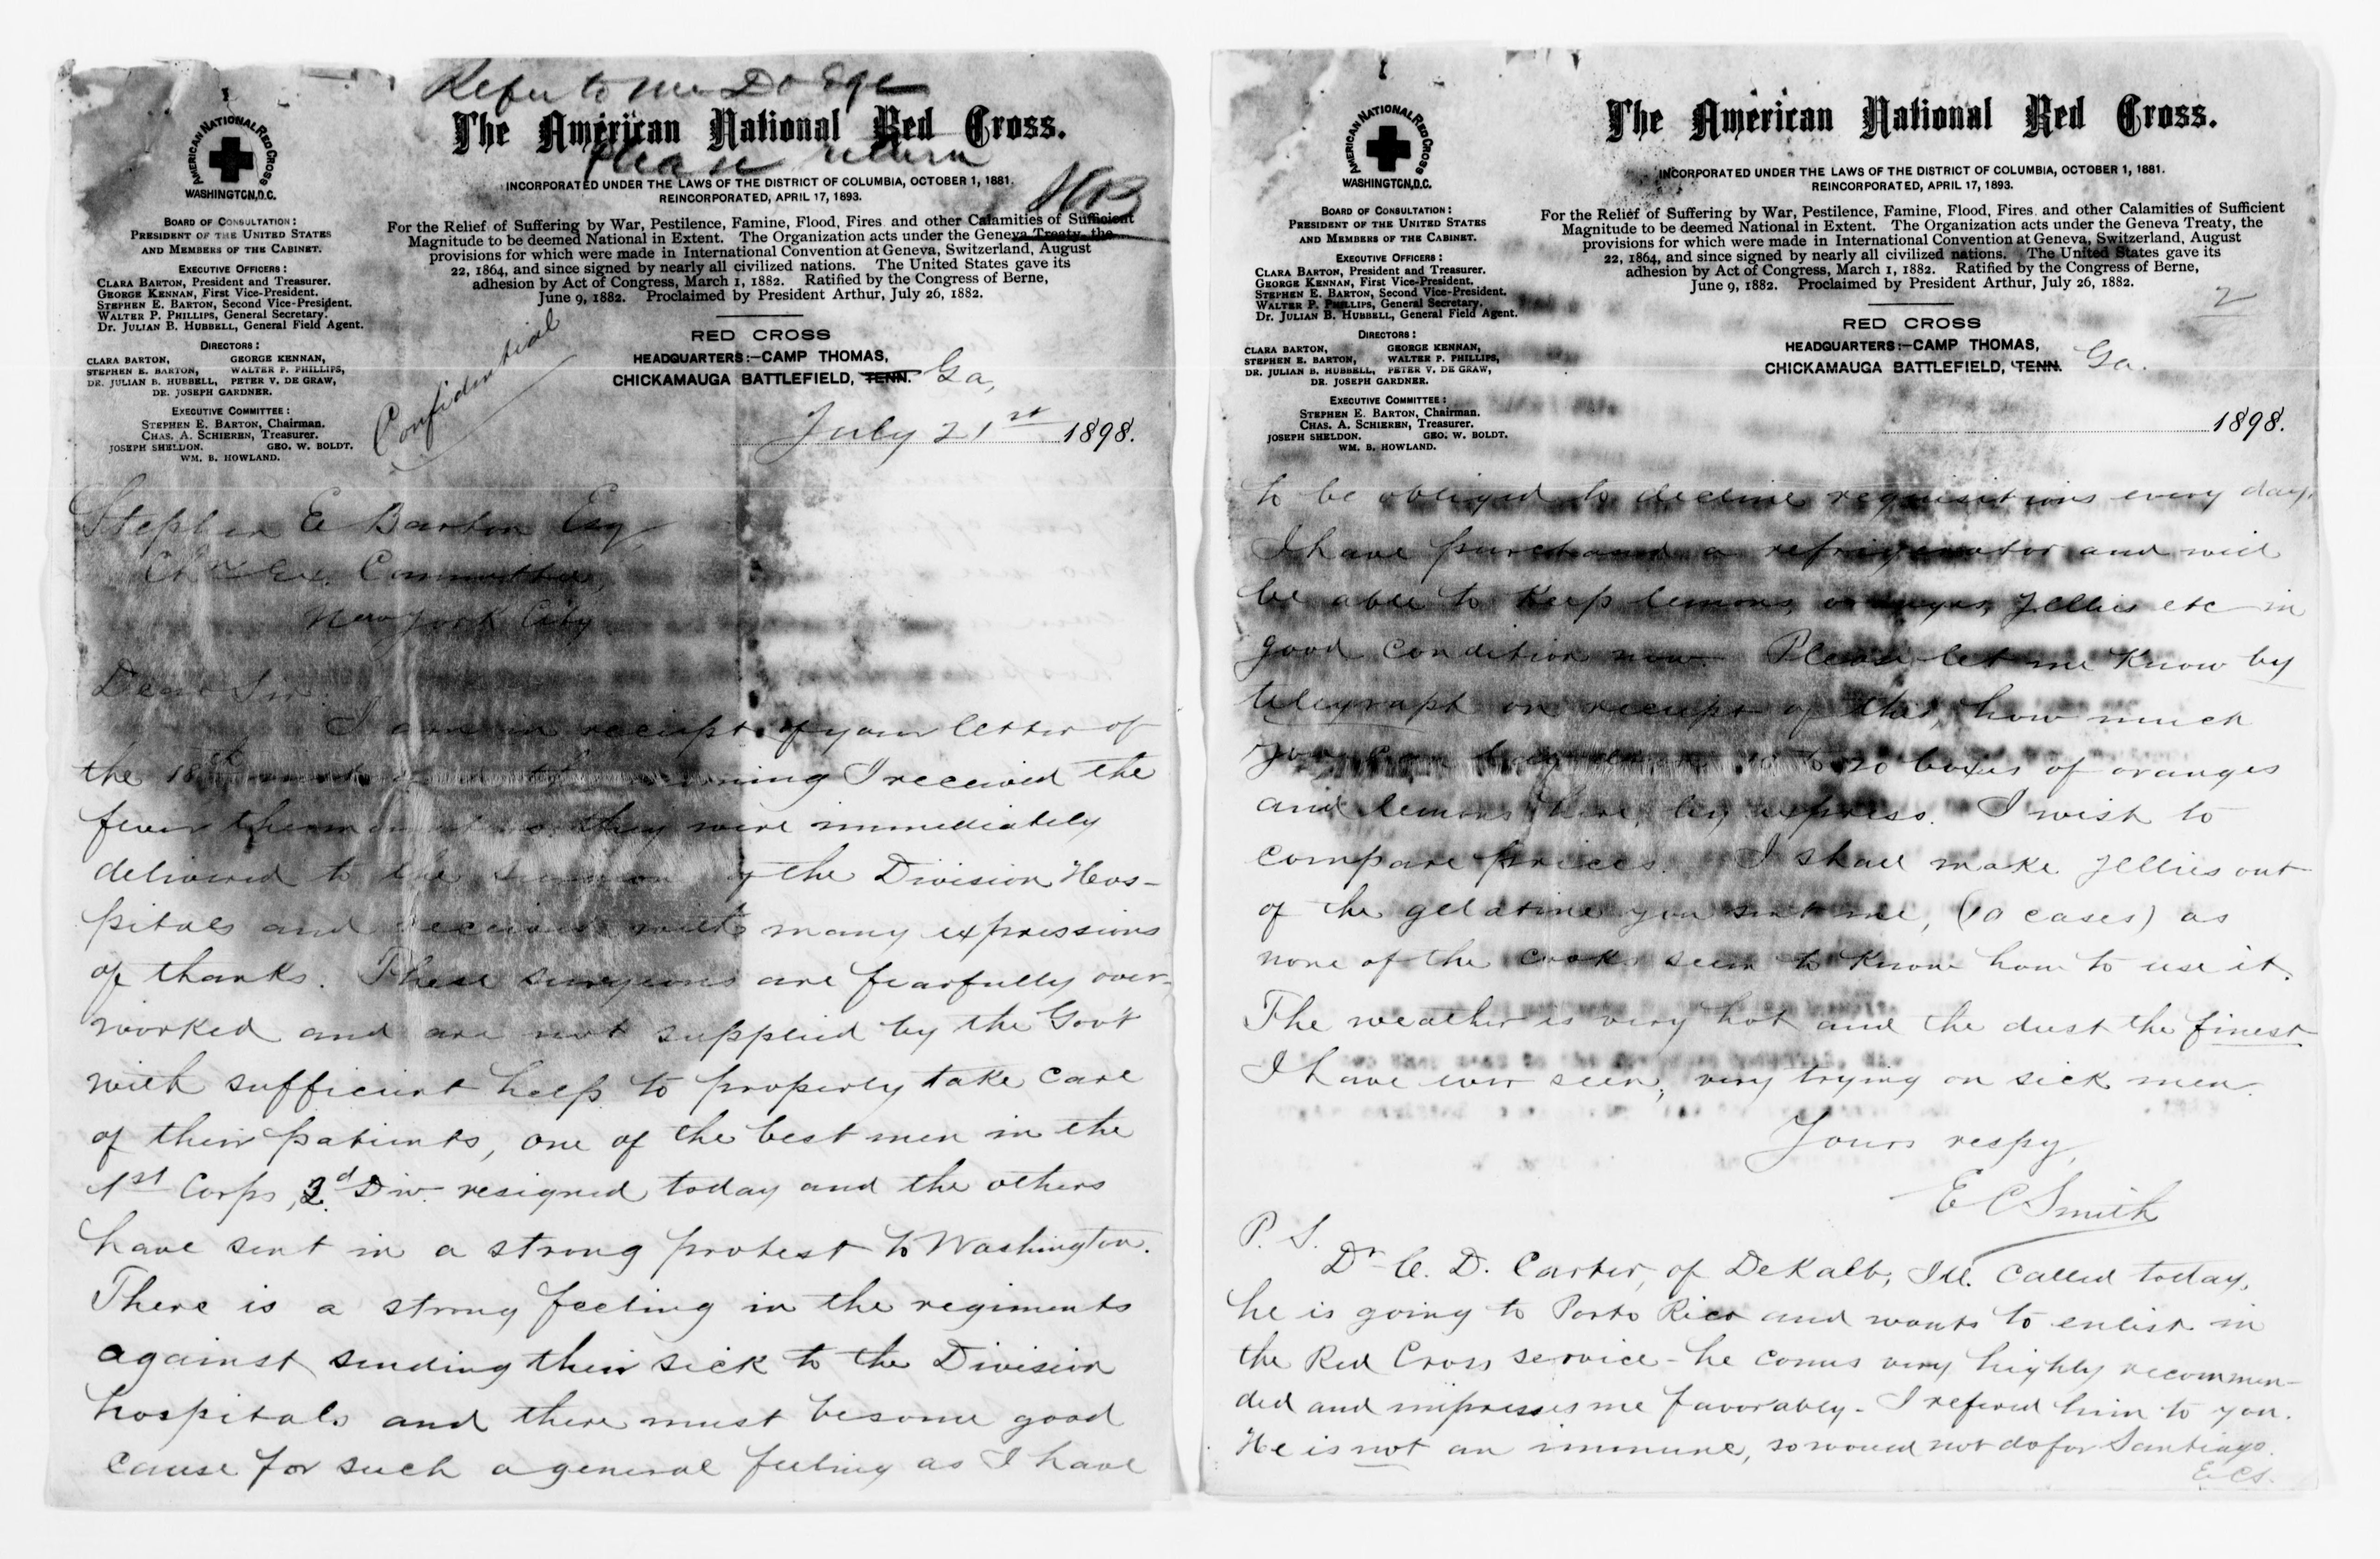 Refer to Mr Dodge
Please return
SEB
AMERICAN NATIONAL RED CROSS
WASHINGTON, D.C.
The American National Red Cross.
INCORPORATED UNDER THE LAWS OF THE DISTRICT OF COLUMBIA, OCTOBER 1, 1881.
REINCORPORATED, APRIL 17, 1893.
For the Relief of Suffering by War, Pestilence, Famine, Flood, Fires and other Calamities of Sufficient
Magnitude to be deemed National in Extent. The Organization acts under the Geneva Treaty, the
provisions for which were made in International Convention at Geneva, Switzerland, August
22, 1864, and since signed by nearly all civilized nations. The United States gave its
adhesion by Act of Congress, March 1, 1882. Ratified by the Congress of Berne,
June 9, 1882. Proclaimed by President Arthur, July 26, 1882.
BOARD OF CONSULTATION:
PRESIDENT OF THE UNITED STATES
AND MEMBERS OF THE CABINET.
EXECUTIVE OFFICERS:
CLARA BARTON, President and Treasurer.
GEORGE KENNAN, First Vice-President.
STEPHEN E. BARTON, Second Vice-President.
WALTER P. PHILLIPS, General Secretary.
Dr. JULIAN B. HUBBELL, General Field Agent.
DIRECTORS:
CLARA BARTON, GEORGE KENNAN,
STEPHEN E. BARTON, WALTER P. PHILLIPS,
DR. JULIAN B. HUBBELL, PETER V. DE GRAW,
DR. JOSEPH GARDNER.
EXECUTIVE COMMITTEE:
STEPHEN E. BARTON, Chairman.
CHAS. A. SCHIEREN, Treasurer.
JOSEPH SHELDON. GEO. W. BOLDT.
WM. B. HOWLAND.
Confidential
RED CROSS
HEADQUARTERS:—CAMP THOMAS,
CHICKAMAUGA BATTLEFIELD, TENN. Ga,
July 21st 1898.
Stephen E Barton Esq,
Chn Ex. Committee,
New York City
Dear Sir
I am in receipt of your letter of
the 18th I received the
fever thermometers they were immediately
delivered to the of the Division Hos-
pitals and received with many expressions
of thanks. These surgeons are fearfully over-
worked and are not supplied by the Gov't
with sufficient help to properly take care
of their patients, one of the best men in the
1st Corps, 3d Div. resigned today and the others
have sent in a strong protest to Washington.
There is a strong feeling in the regiments
against sending their sick to the Division
hospitals and there must be some good
cause for such a general feeling as I have
AMERICAN NATIONAL RED CROSS
WASHINGTON, D.C.
The American National Red Cross.
INCORPORATED UNDER THE LAWS OF THE DISTRICT OF COLUMBIA, OCTOBER 1, 1881.
REINCORPORATED, APRIL 17, 1893.
For the Relief of Suffering by War, Pestilence, Famine, Flood, Fires and other Calamities of Sufficient
Magnitude to be deemed National in Extent. The Organization acts under the Geneva Treaty, the
provisions for which were made in International Convention at Geneva, Switzerland, August
22, 1864, and since signed by nearly all civilized nations. The United States gave its
adhesion by Act of Congress, March 1, 1882. Ratified by the Congress of Berne,
June 9, 1882. Proclaimed by President Arthur, July 26, 1882.
2
BOARD OF CONSULTATION:
PRESIDENT OF THE UNITED STATES
AND MEMBERS OF THE CABINET.
EXECUTIVE OFFICERS:
CLARA BARTON, President and Treasurer.
GEORGE KENNAN, First Vice-President.
STEPHEN E. BARTON, Second Vice-President.
WALTER P. PHILLIPS, General Secretary.
Dr. JULIAN B. HUBBELL, General Field Agent.
DIRECTORS:
CLARA BARTON, GEORGE KENNAN,
STEPHEN E. BARTON, WALTER P. PHILLIPS,
DR. JULIAN B. HUBBELL, PETER V. DE GRAW,
DR. JOSEPH GARDNER.
EXECUTIVE COMMITTEE:
STEPHEN E. BARTON, Chairman.
CHAS. A. SCHIEREN, Treasurer.
JOSEPH SHELDON. GEO. W. BOLDT.
WM. B. HOWLAND.
RED CROSS
HEADQUARTERS:—CAMP THOMAS,
CHICKAMAUGA BATTLEFIELD, TENN. Ga.
1898.
to be obliged to decline requisitions every day.
I have purchased a refrigerator and will
be able to keep lemons, oranges, jellies etc in
good condition now. Please let me know by
telegraph on receipt of this, how much
you can 10 to 20 boxes of oranges
and lemons here, by express. I wish to
compare prices. I shall make jellies out
of the gelatine you sent me, (10 cases) as
none of the cooks seem to know how to use it.
The weather is very hot and the dust the finest
I have ever seen, very trying on sick men.
Yours respy,
E C Smith
P. S.
Dr C. D. Carter, of DeKalb, Ill. called today,
he is going to Porto Rico and wants to enlist in
the Red Cross service - he comes very highly recommen-
ded and impresses me favorably - I refered him to you.
He is not an immune, so would not do for Santiago.
E.C.S.